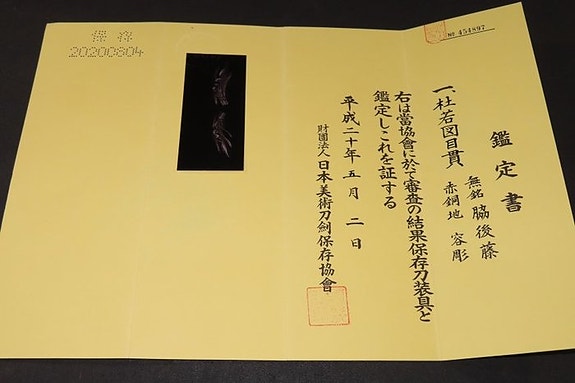 № 454897
鑑定書
一、杜若図目貫
無銘 脇後藤
赤銅地 容彫
右は當協會に於て審査の結果保存刀装具と
鑑定しこれを証する
平成二十年五月二日
財團法人日本美術刀劍保存協會
保存
20200804